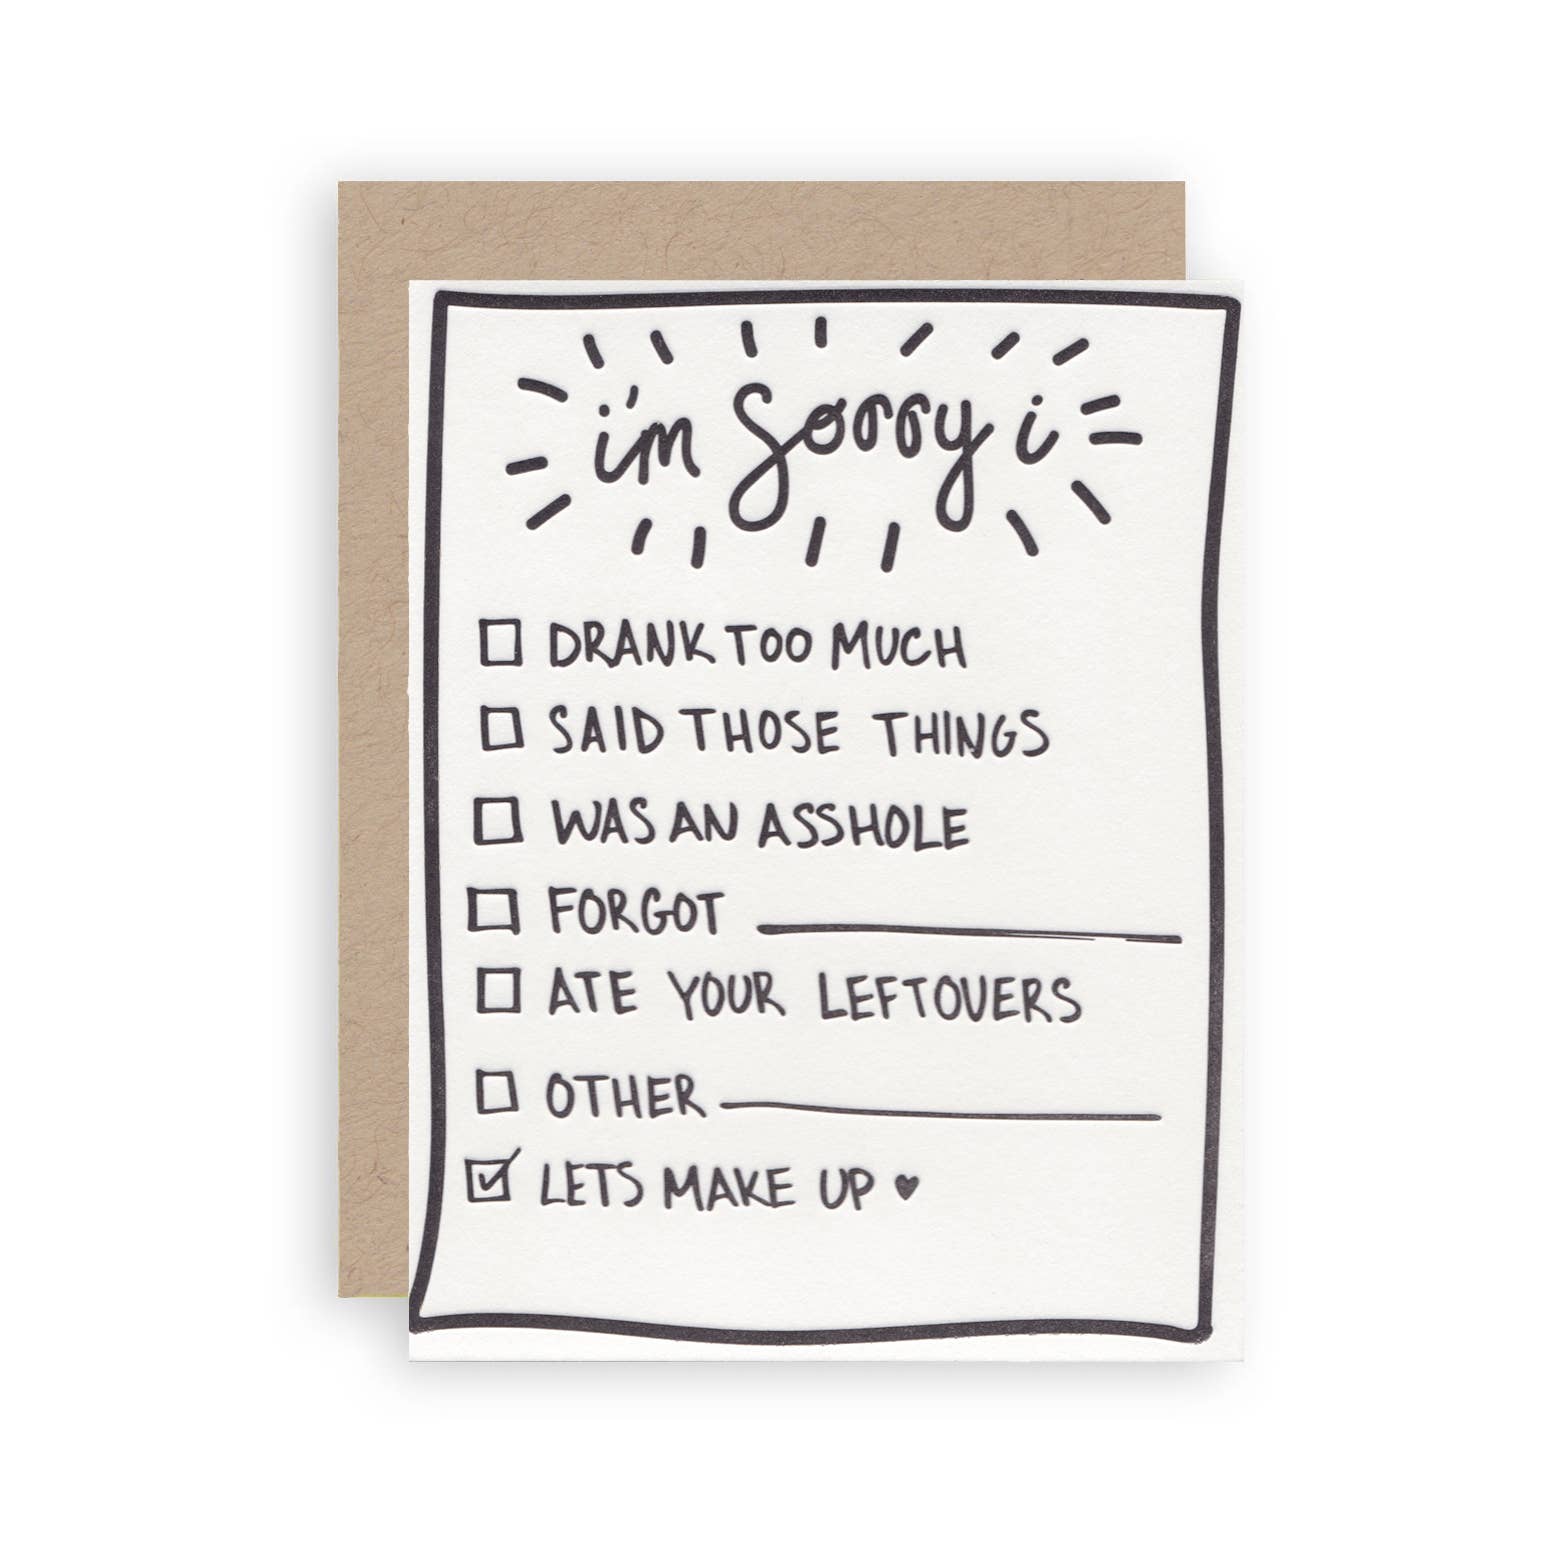 i'm sorry i
DRANK TOO MUCH
SAID THOSE THINGS
WAS AN ASSHOLE
FORGOT
ATE YOUR LEFTOVERS
OTHER
LETS MAKE UP ♥